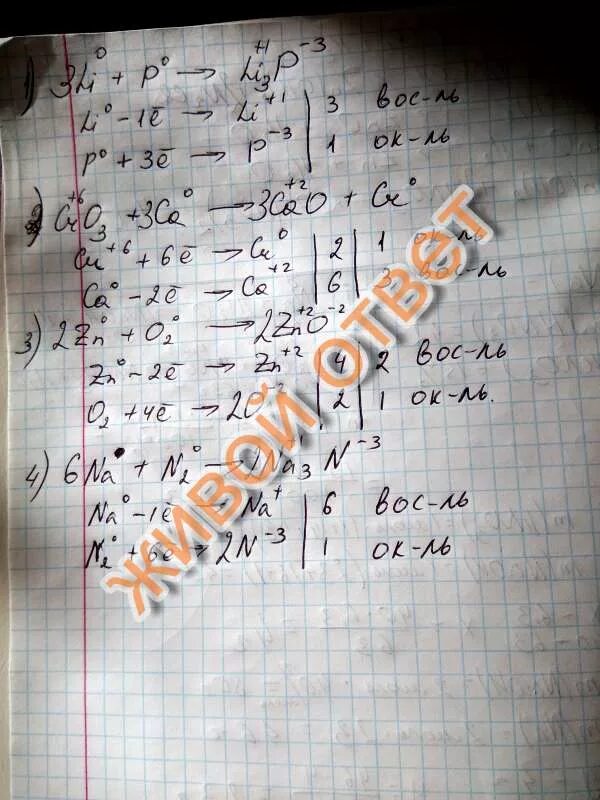 1) 3Li⁰ + P⁰ → Li₃⁺¹P⁻³
Li⁰ - 1ē → Li⁺¹ | 3 вос-ль
P⁰ + 3ē → P⁻³ | 1 ок-ль
2) Cr⁺⁶O₃ + 3Ca⁰ → 3Ca⁺²O + Cr⁰
Cr⁺⁶ + 6ē → Cr⁰ | 2 | 1 ок-ль
Ca⁰ - 2ē → Ca⁺² | 6 | 3 вос-ль
3) 2Zn⁰ + O₂⁰ → 2Zn⁺²O⁻²
Zn⁰ - 2ē → Zn⁺² | 4 | 2 вос-ль
O₂ + 4ē → 2O⁻² | 2 | 1 ок-ль.
4) 6Na⁰ + N₂⁰ → Na₃⁺¹N⁻³
Na⁰ - 1ē → Na⁺ | 6 вос-ль
N₂⁰ + 6ē → 2N⁻³ | 1 ок-ль
ЖИВОЙ ОТВЕТ